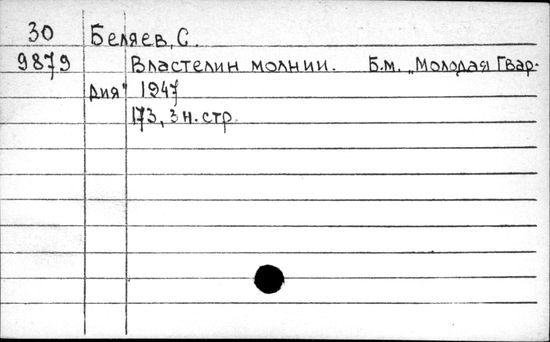 30 Беляев, С.
9879 Властелин молнии. Б.м. „Молодая Гвар-
дия" 1947
173, 3 н. стр.